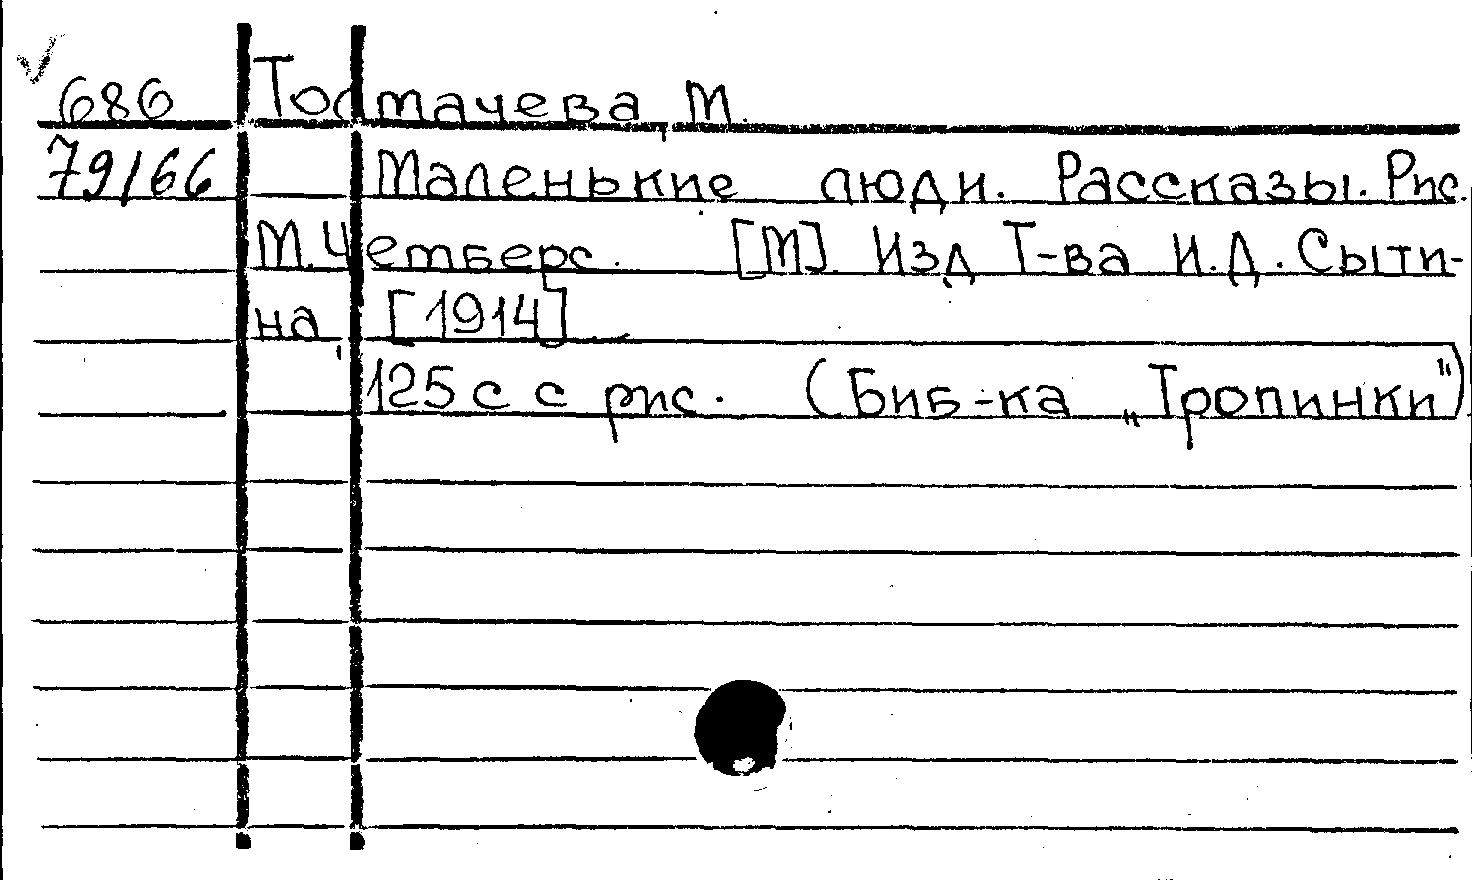 686 Толмачева, М.
79/66 Маленькие люди. Рассказы. Рис.
М. Четберс. [М]. Изд Т-ва И. Д. Сыти-
на, [1914]
125 с с рис. (Биб-ка „Тропинки")